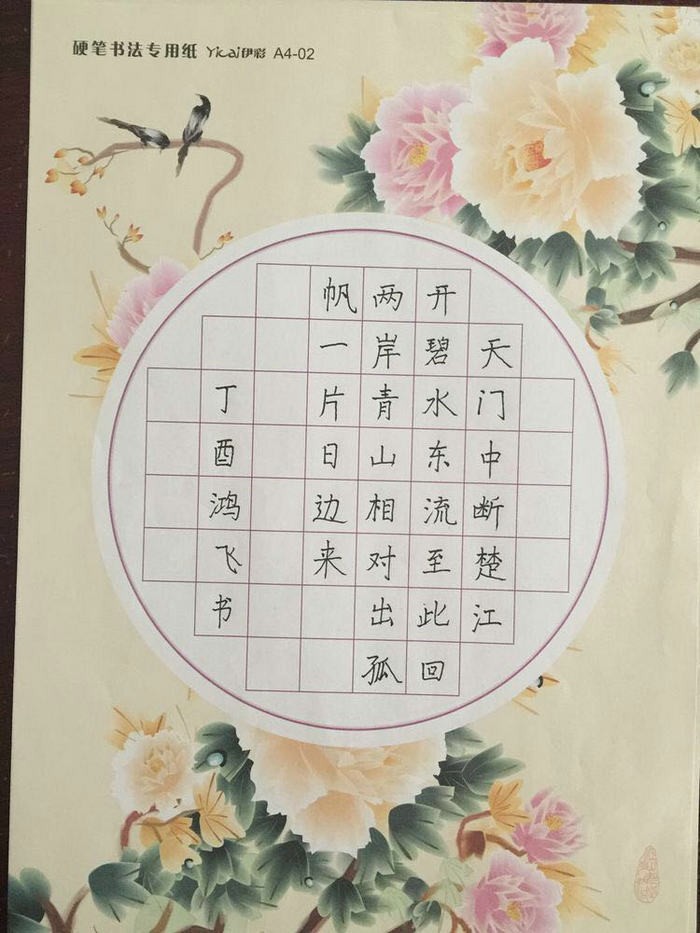 硬笔书法专用纸 Yicai伊彩 A4-02
天门中断楚江
开碧水东流至此回
两岸青山相对出孤
帆一片日边来
丁酉鸿飞书